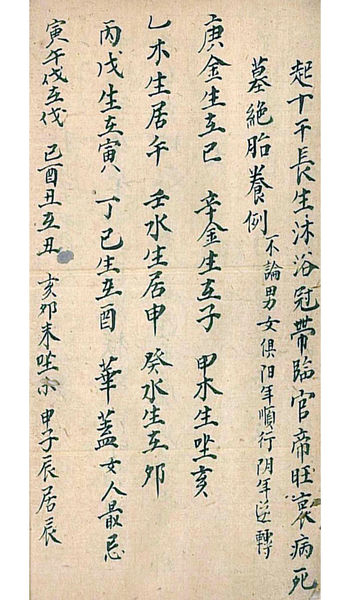 起十干長生沐浴冠帶臨官帝旺衰病死
墓絕胎養例不論男女俱阳年順行阴年逆轉
庚金生在巳 辛金生在子 甲木生坐亥
乙木生居午 壬水生居申 癸水生在夘
丙戊生在寅 丁己生在酉 華蓋女人最忌
寅午戌在戌 巳酉丑在丑 亥夘未坐未 申子辰居辰